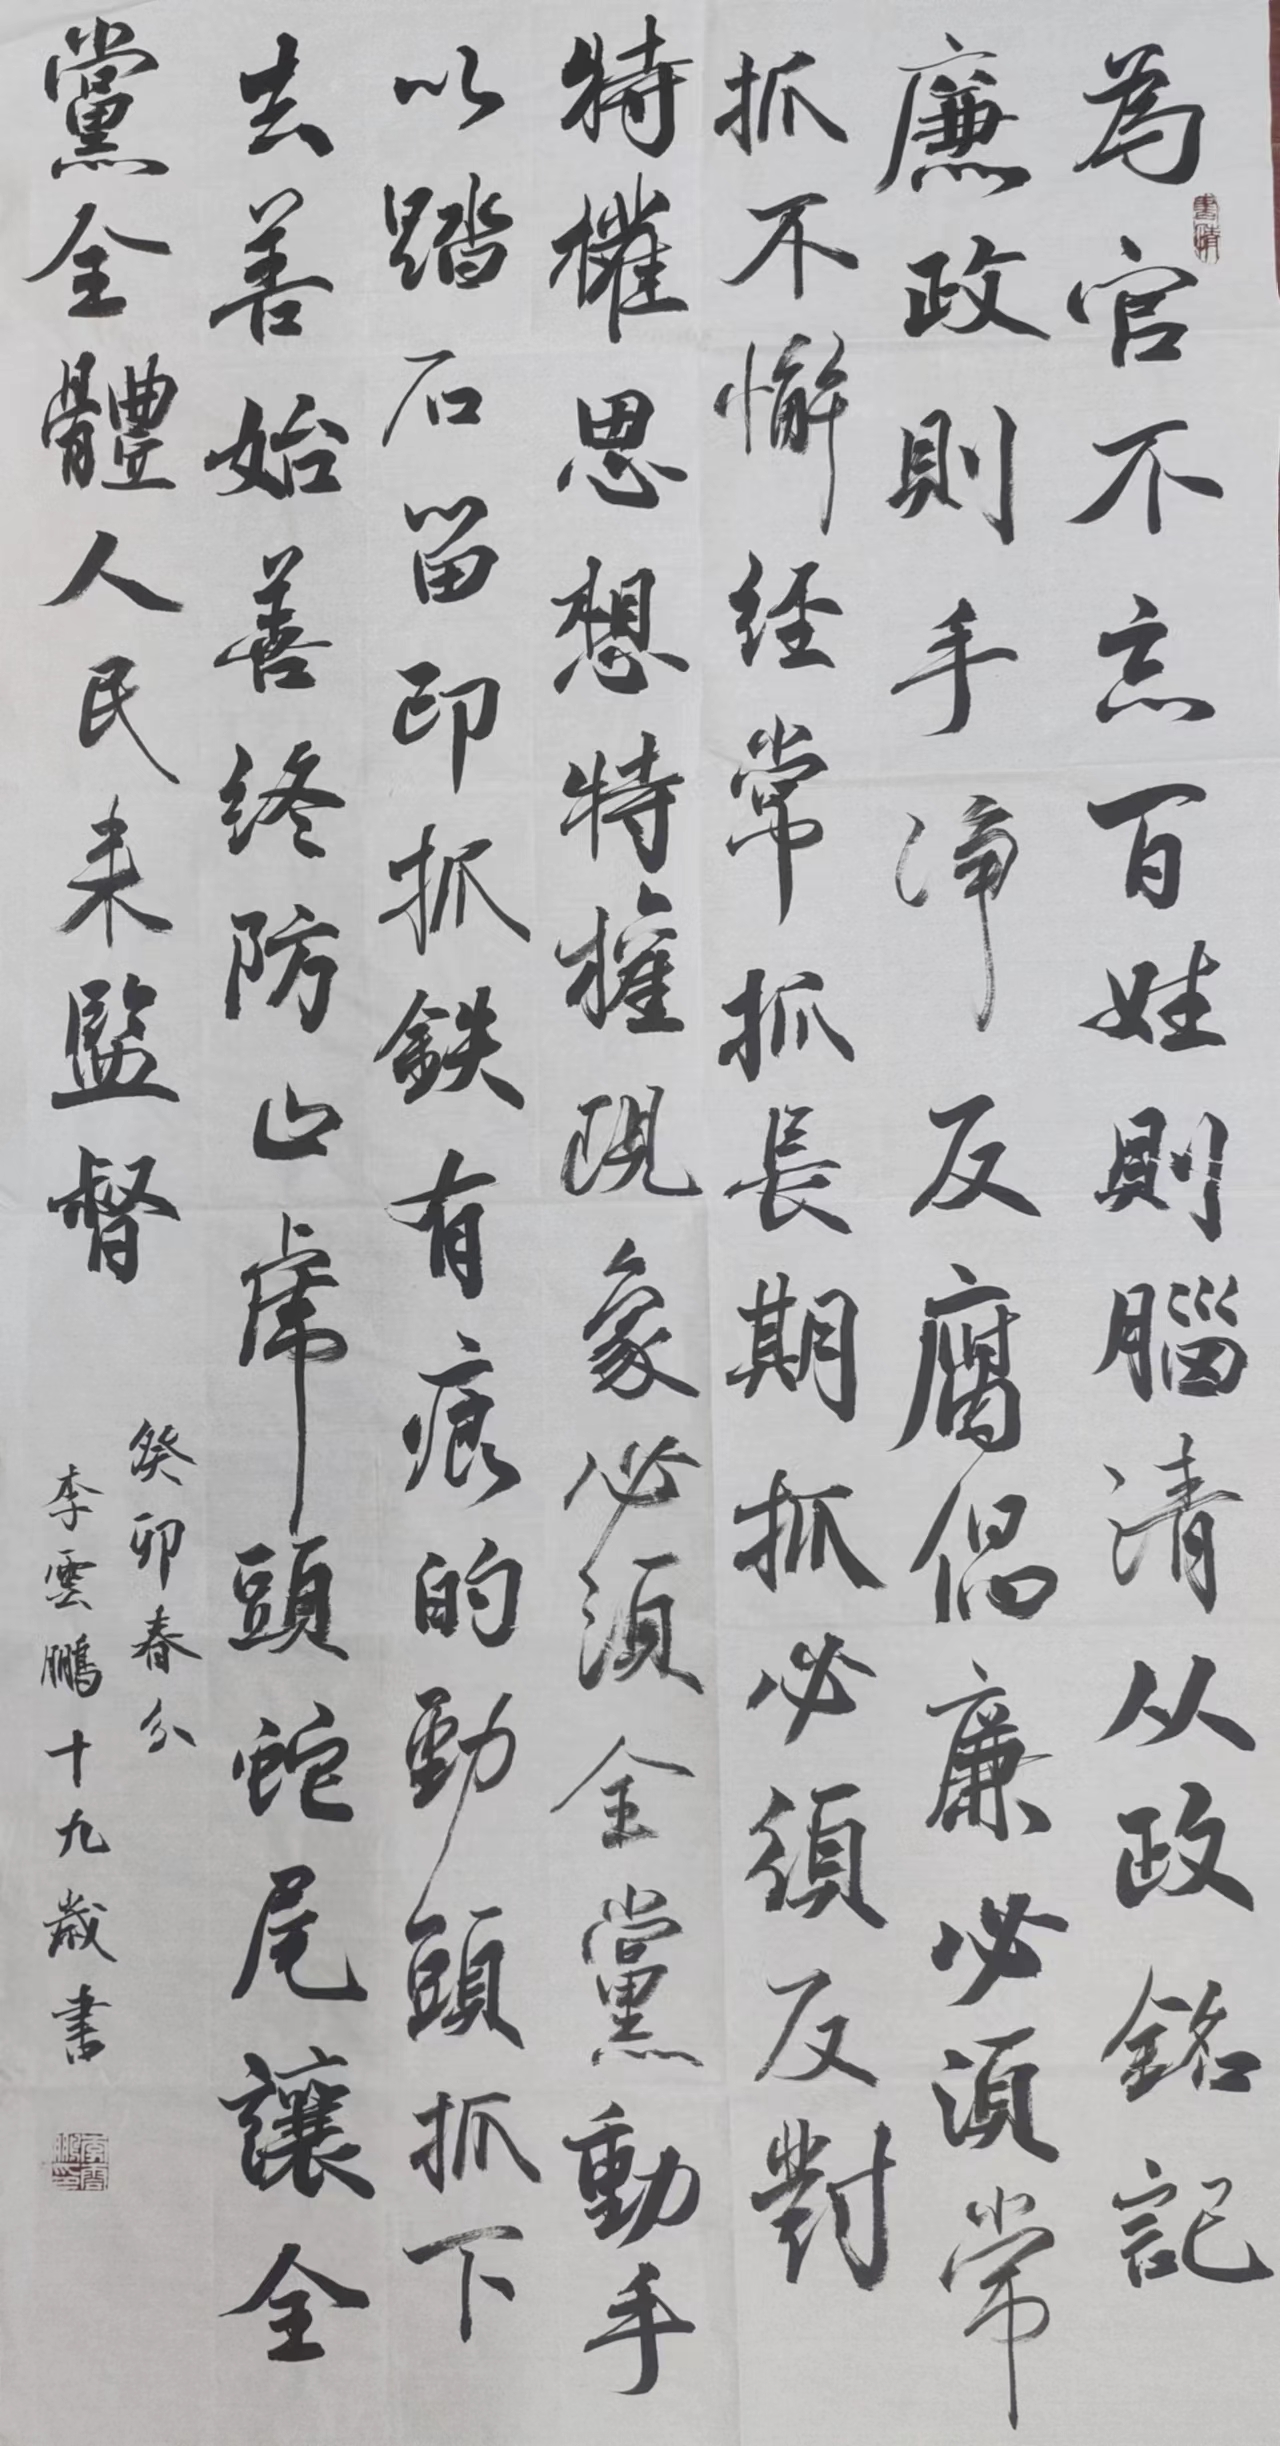 為官不忘百姓則腦清从政銘記
廉政則手淨反腐倡廉必須常
抓不懈經常抓長期抓必須反對
特權思想特權現象必須全黨動手
以踏石留印抓鉄有痕的勁頭抓下
去善始善終防止虎頭蛇尾讓全
黨全體人民来監督
癸卯春分
李雲鵬十九歲書